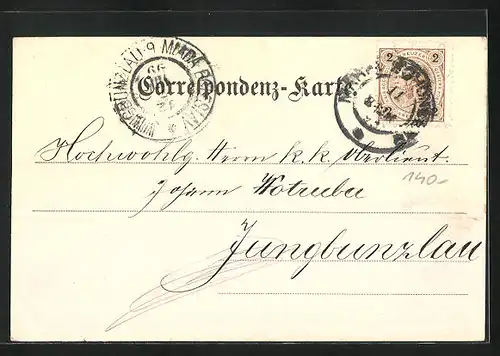 JUNGBUNZLAU 9 MLADÁ BOLESLAV
99
Correspondenz-Karte
2 2
Hochwohlg. Herrn k. k. Oberlieut.
Johann Wotruba
140.-
Jungbunzlau